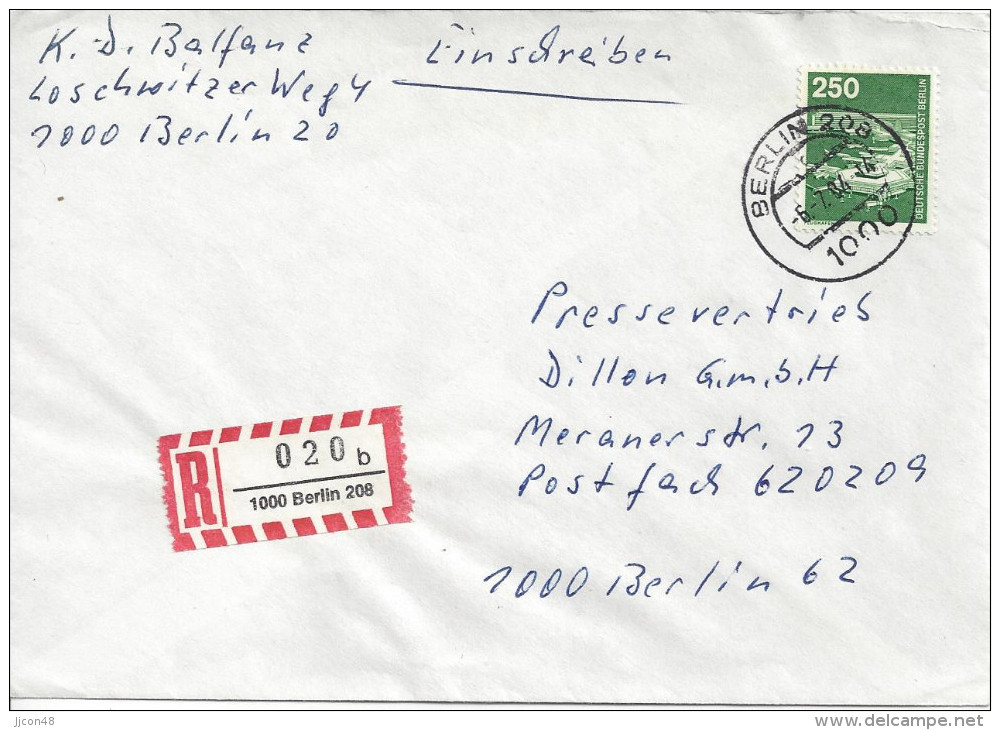 K. D. Balfanz
Loschwitzer Weg 4
1000 Berlin 20
Einschreiben
250
DEUTSCHE BUNDESPOST BERLIN
BERLIN 208
-6.-7.84-14
1000
Pressevertrieb
Dillon G.m.b.H
Meranerstr. 13
Postfach 620209
1000 Berlin 62
R
020 b
1000 Berlin 208
jjcon48
delcampe.net